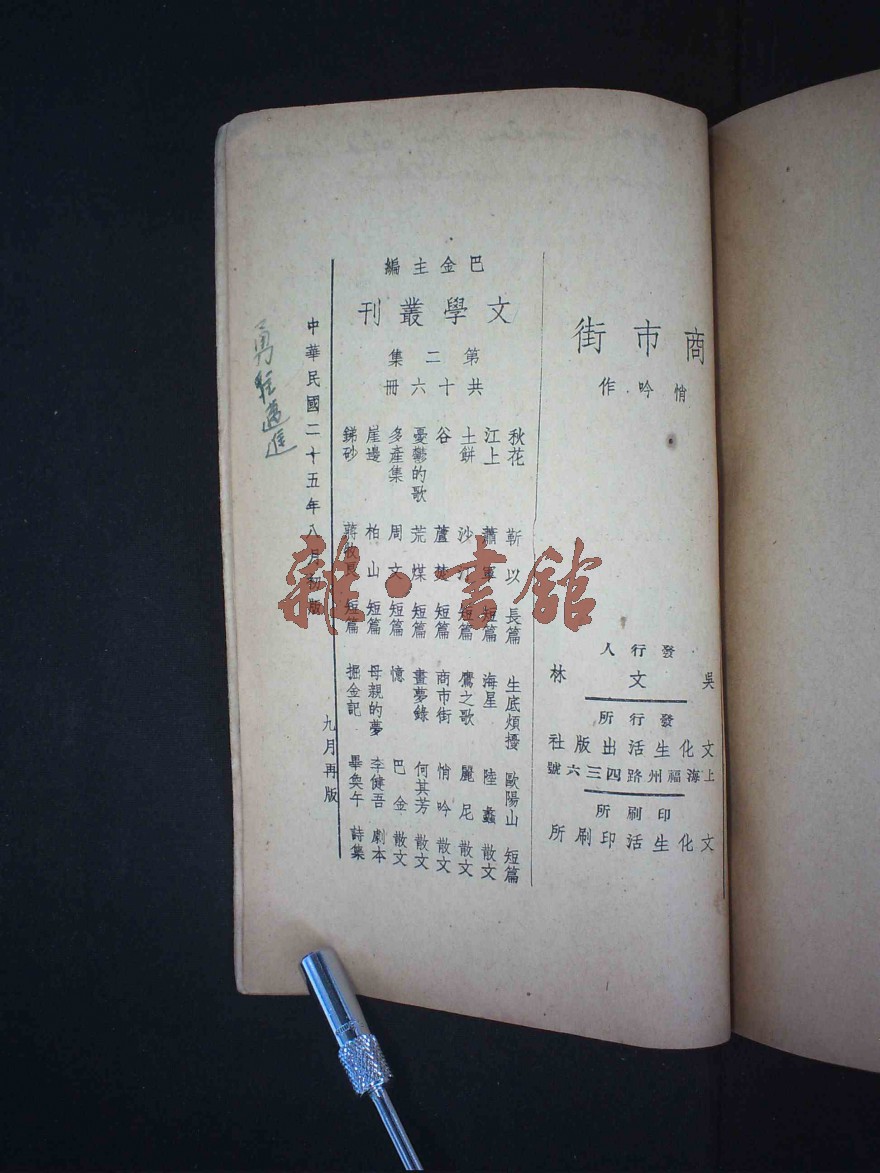 商市街
悄吟作
發行人
吳文林
發行所
文化生活出版社
上海福州路四三六號
印刷所
文化生活印刷所
巴金主編
文學叢刊
第二集
共十六冊
秋花 靳以 長篇 生底煩擾 歐陽山 短篇
江上 蕭軍 短篇 海星 陸蠡 散文
土餅 沙汀 短篇 鷹之歌 麗尼 散文
谷 蘆焚 短篇 商市街 悄吟 散文
憂鬱的歌 荒煤 短篇 畫夢錄 何其芳 散文
多產集 周文 短篇 憶 巴金 散文
崖邊 柏山 短篇 母親的夢 李健吾 劇本
銻砂 蔣牧良 短篇 掘金記 畢奐午 詩集
中華民國二十五年八月初版
九月再版
勇往邁進
雜·書館